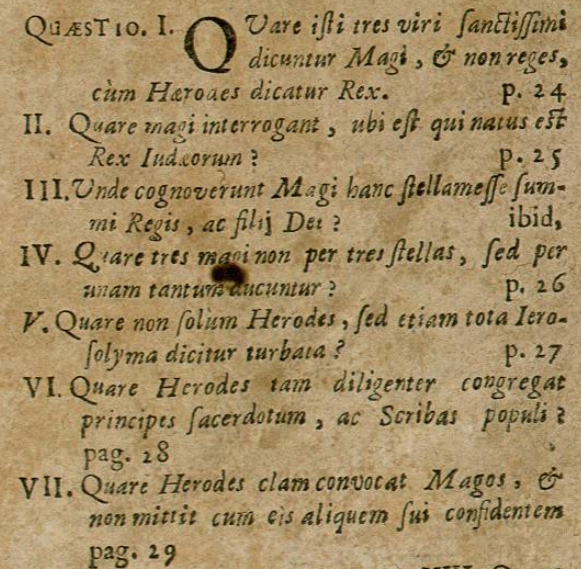 QUÆSTIO. I. QVare iſti tres viri ſanctiſſimi
dicuntur Magi, & non reges,
cùm Hærodes dicatur Rex. p. 24
II. Quare magi interrogant, ubi eſt qui natus eſt
Rex Iudæorum? p. 25
III. Unde cognoverunt Magi hanc ſtellam eſſe ſum-
mi Regis, ac filij Dei? ibid,
IV. Quare tres magi non per tres ſtellas, ſed per
unam tantum ducuntur? p. 26
V. Quare non ſolum Herodes, ſed etiam tota Iero-
ſolyma dicitur turbata? p. 27
VI. Quare Herodes tam diligenter congregat
principes ſacerdotum, ac Scribas populi?
pag. 28
VII. Quare Herodes clam convocat Magos, &
non mittit cum eis aliquem ſui confidentem
pag. 29